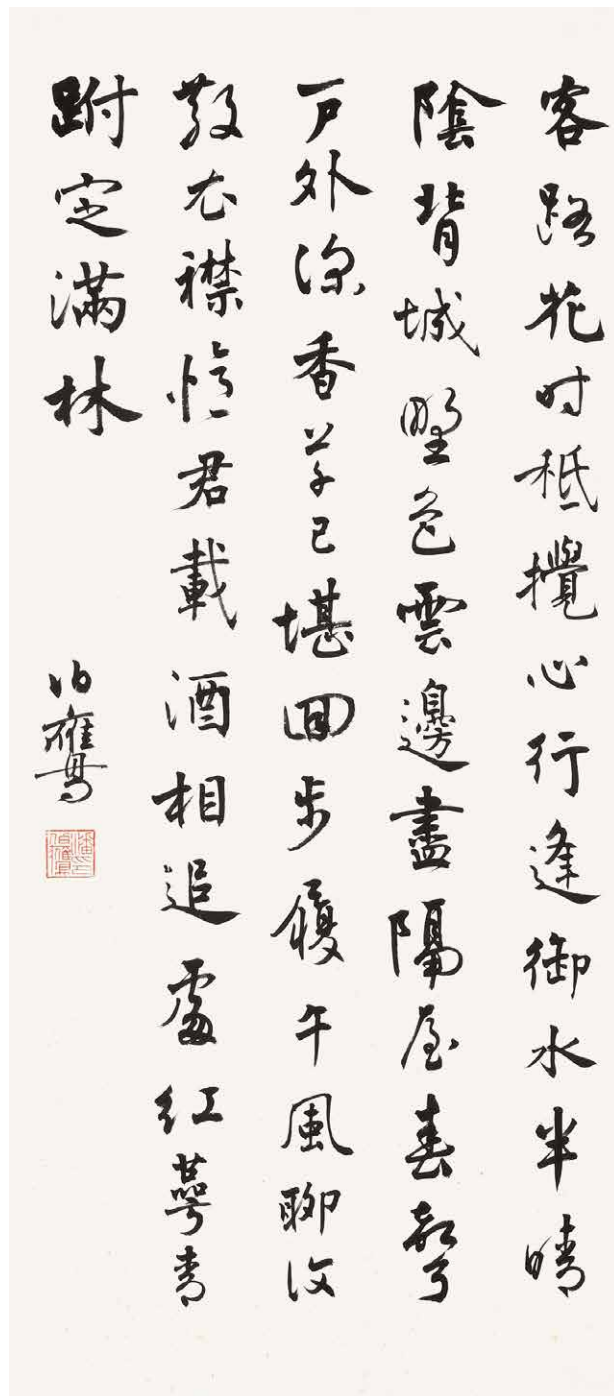 客路花时秖攪心行逢御水半晴
陰背城野色雲邊盡隔屋春聲
戶外深香草已堪回步履午風聊復
散衣襟憶君載酒相追處紅萼青
跗定滿林
伯鷹
潘印伯鷹